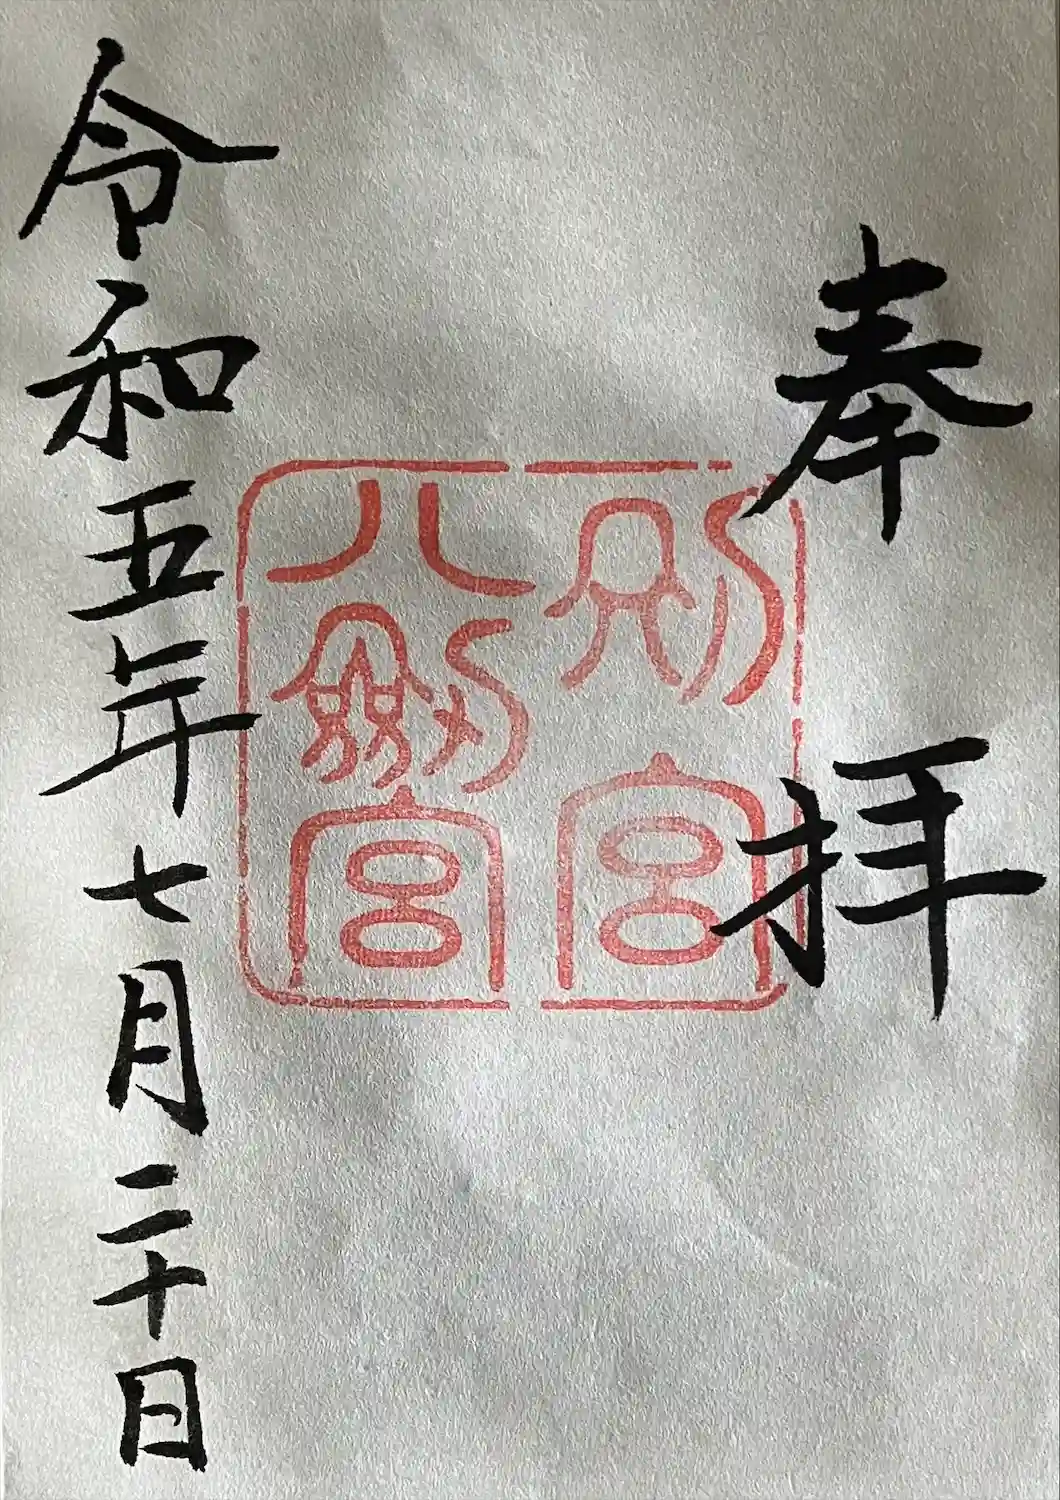 奉拝
八剱宮
令和五年七月二十日